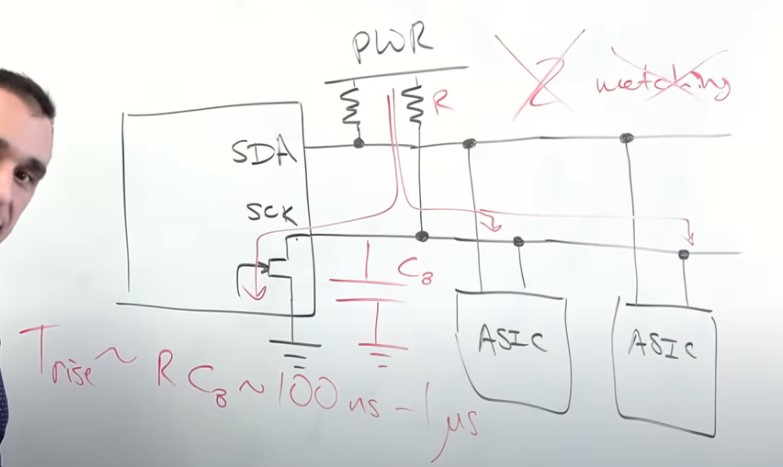 PWR
Z matching
R
SDA
SCK
C_B
ASIC ASIC
T_rise ~ R C_B ~ 100 ns - 1 μs